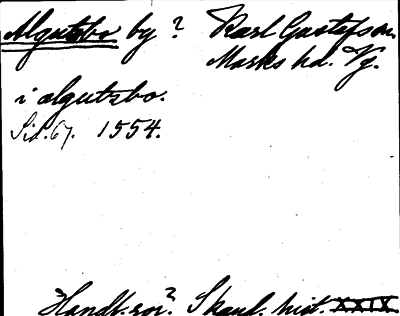 Algutsbo by? Karl Gustafson
Marks hd. Vg.
i algutzbo.
Sid. 67. 1554.
"Handl. rör"? Skand. hist. XXIX